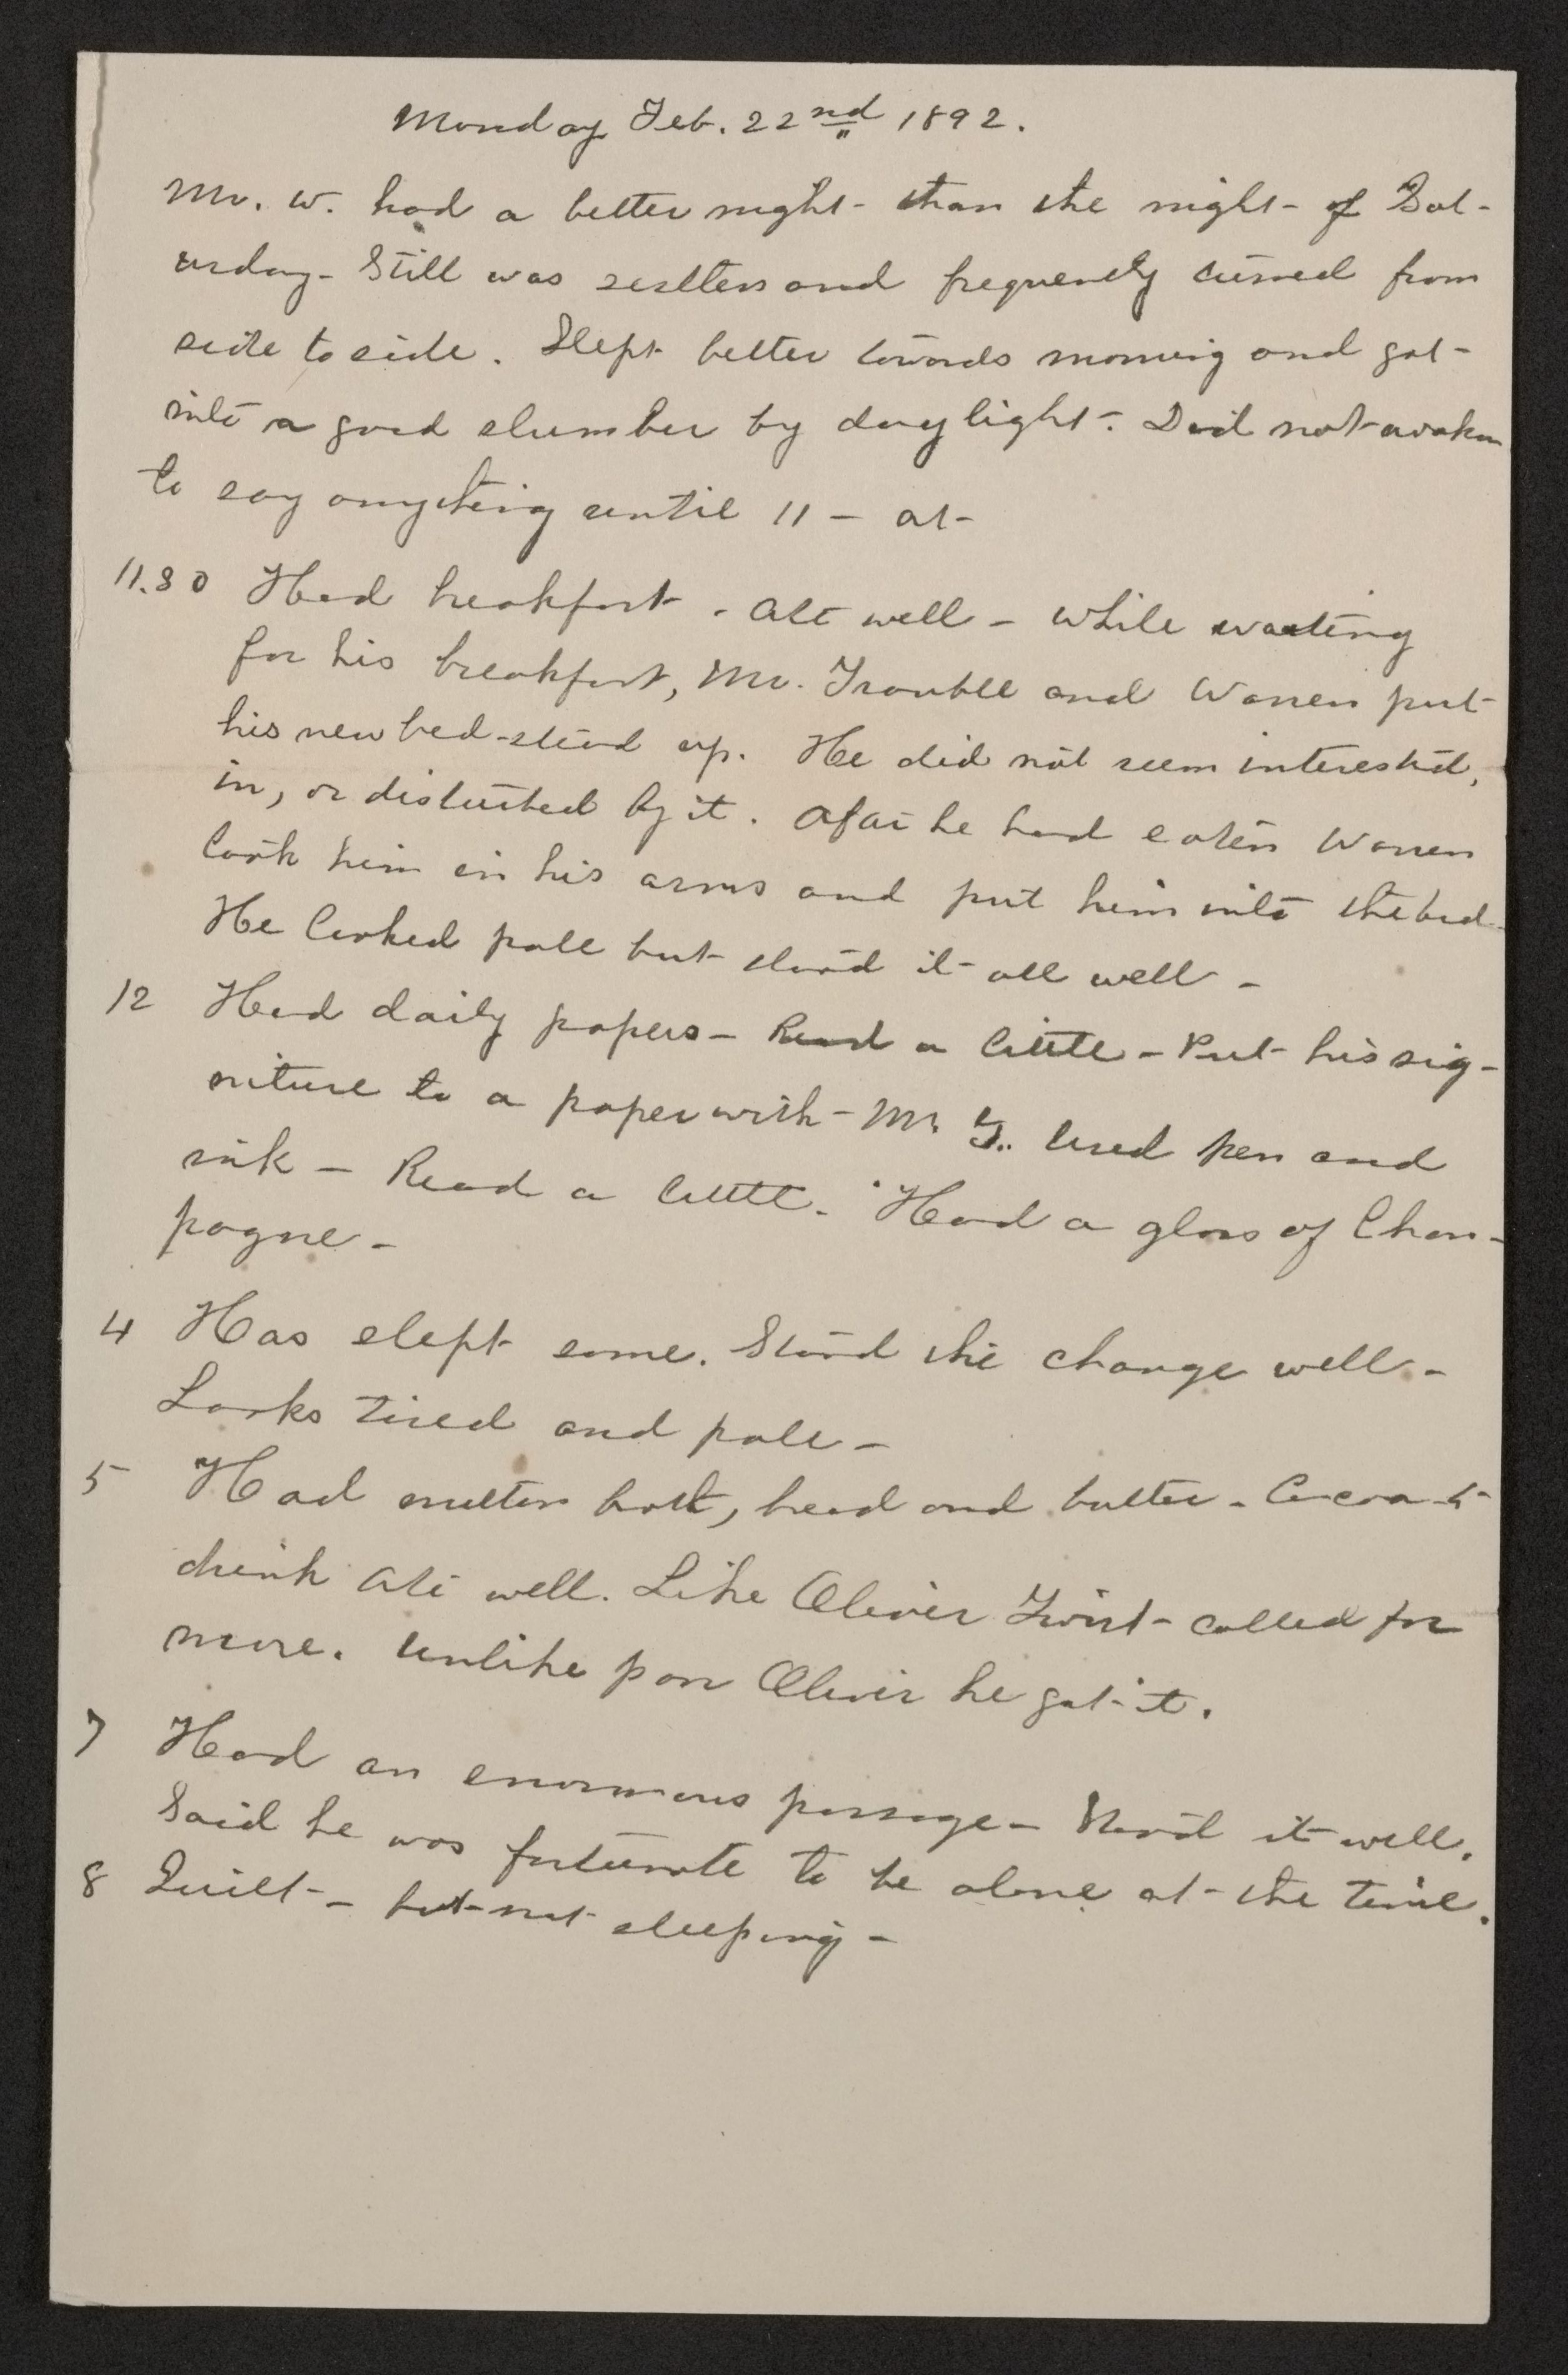 Monday Feb. 22nd 1892.
Mr. W. had a better night - than the night - of Sat-
urday - Still was restless and frequently turned from
side to side. Slept better towards morning and got -
into a good slumber by day light -. Did not awaken
to say anything until 11 - at -
11.30 Had breakfast - ate well - while waiting
for his breakfast, Mr. Traubel and Warren put -
his new bed-stead up. He did not seem interested,
in, or disturbed by it. After he had eaten Warren
took him in his arms and put him into the bed -
He looked pale but stood it all well -
12 Had daily papers - Read a little - Put his sig-
niture to a paper with - Mr. T.. Used pen and
ink - Read a little. Had a glass of Cham-
pagne -
4 Has slept some. Stood the change well -
Looks tired and pale -
5 Had mutton broth, bread and butter - Cocoa to
drink Ate well. Like Oliver Twist - called for
more. Unlike poor Oliver he got it.
7 Had an enormous passage - Stood it well.
Said he was fortunate to be alone at - the time.
8 Quiet - but not sleeping -